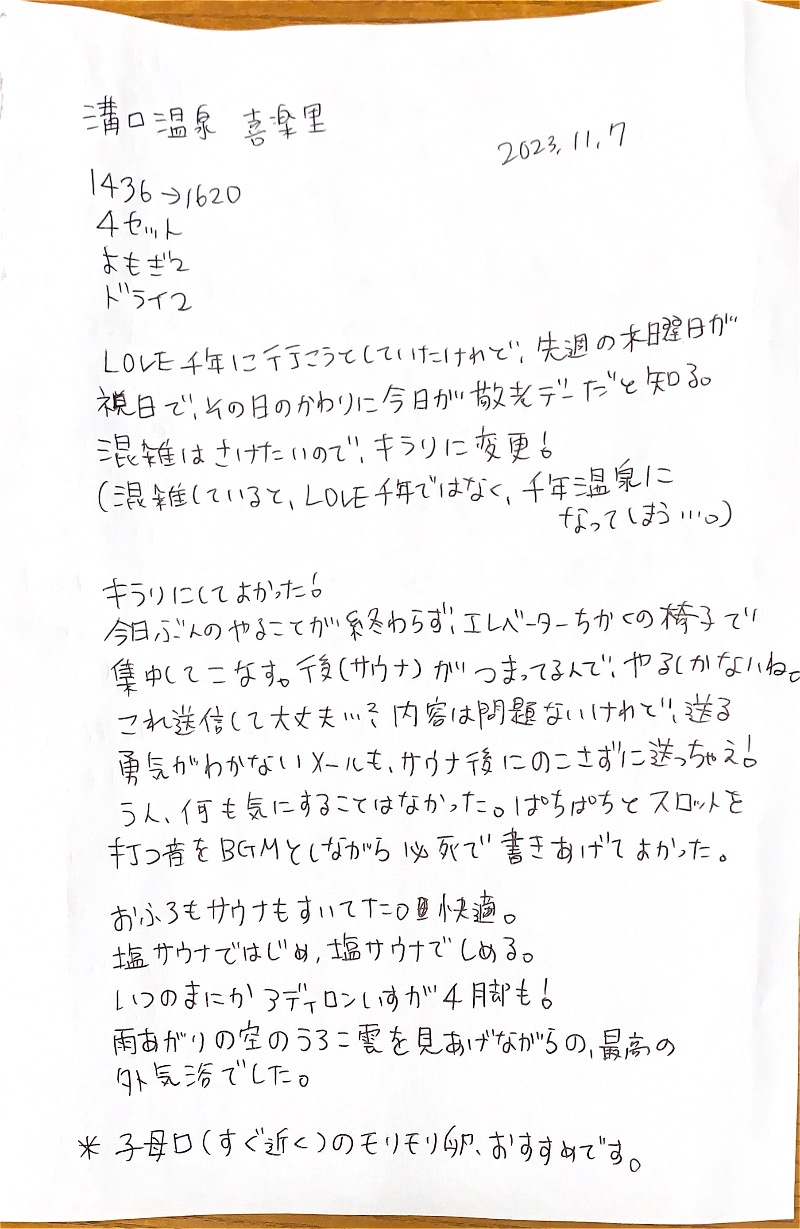 溝口温泉 喜楽里
2023.11.7
1436→1620
4セット
よもぎ2
ドライ2
LOVE千年に行こうとしていたけれど、先週の木曜日が
祝日で、その日のかわりに今日が敬老デーだと知る。
混雑はさけたいので、キラリに変更!
(混雑していると、LOVE千年ではなく、千年温泉に
なってしまう…。)
キラリにしてよかった!
今日ぶんのやることが終わらず、エレベーターちかくの椅子で
集中してこなす。後(サウナ)がつまってるんで、やるしかないね。
これ送信して大丈夫…? 内容は問題ないけれど、送る
勇気がわかないメールも、サウナ後にのこさずに送っちゃえ!
うん、何も気にすることはなかった。ぱちぱちとスロットを
打つ音をBGMとしながら必死で書きあげてよかった。
おふろもサウナもすいてた○ 快適。
塩サウナではじめ、塩サウナでしめる。
いつのまにかアディロンいすが4脚も!
雨あがりの空のうろこ雲を見あげながらの、最高の
外気浴でした。
* 子母口(すぐ近く)のモリモリ卵、おすすめです。